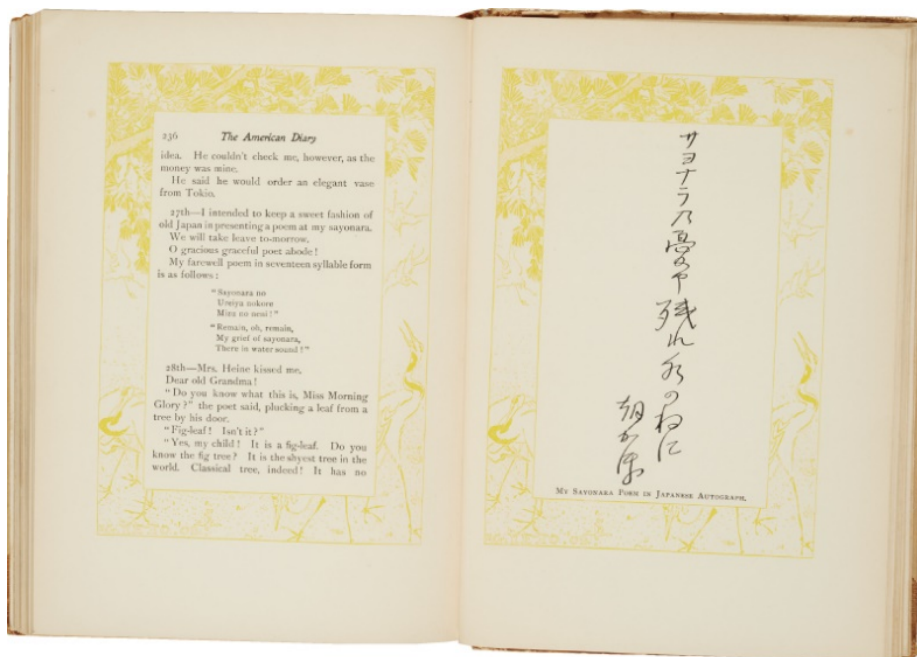 236 The American Diary
idea. He couldn't check me, however, as the
money was mine.
He said he would order an elegant vase
from Tokio.
27th—I intended to keep a sweet fashion of
old Japan in presenting a poem at my sayonara.
We will take leave to-morrow.
O gracious graceful poet abode!
My farewell poem in seventeen syllable form
is as follows:
"Sayonara no
Ureiya nokore
Mizu no neni!"
"Remain, oh, remain,
My grief of sayonara,
There in water sound!"
28th—Mrs. Heine kissed me.
Dear old Grandma!
"Do you know what this is, Miss Morning
Glory?" the poet said, plucking a leaf from a
tree by his door.
"Fig-leaf! Isn't it?"
"Yes, my child! It is a fig-leaf. Do you
know the fig tree? It is the shyest tree in the
world. Classical tree, indeed! It has no
サヨナラ乃憂や残れ水のねに
朝か保
My Sayonara Poem in Japanese Autograph.